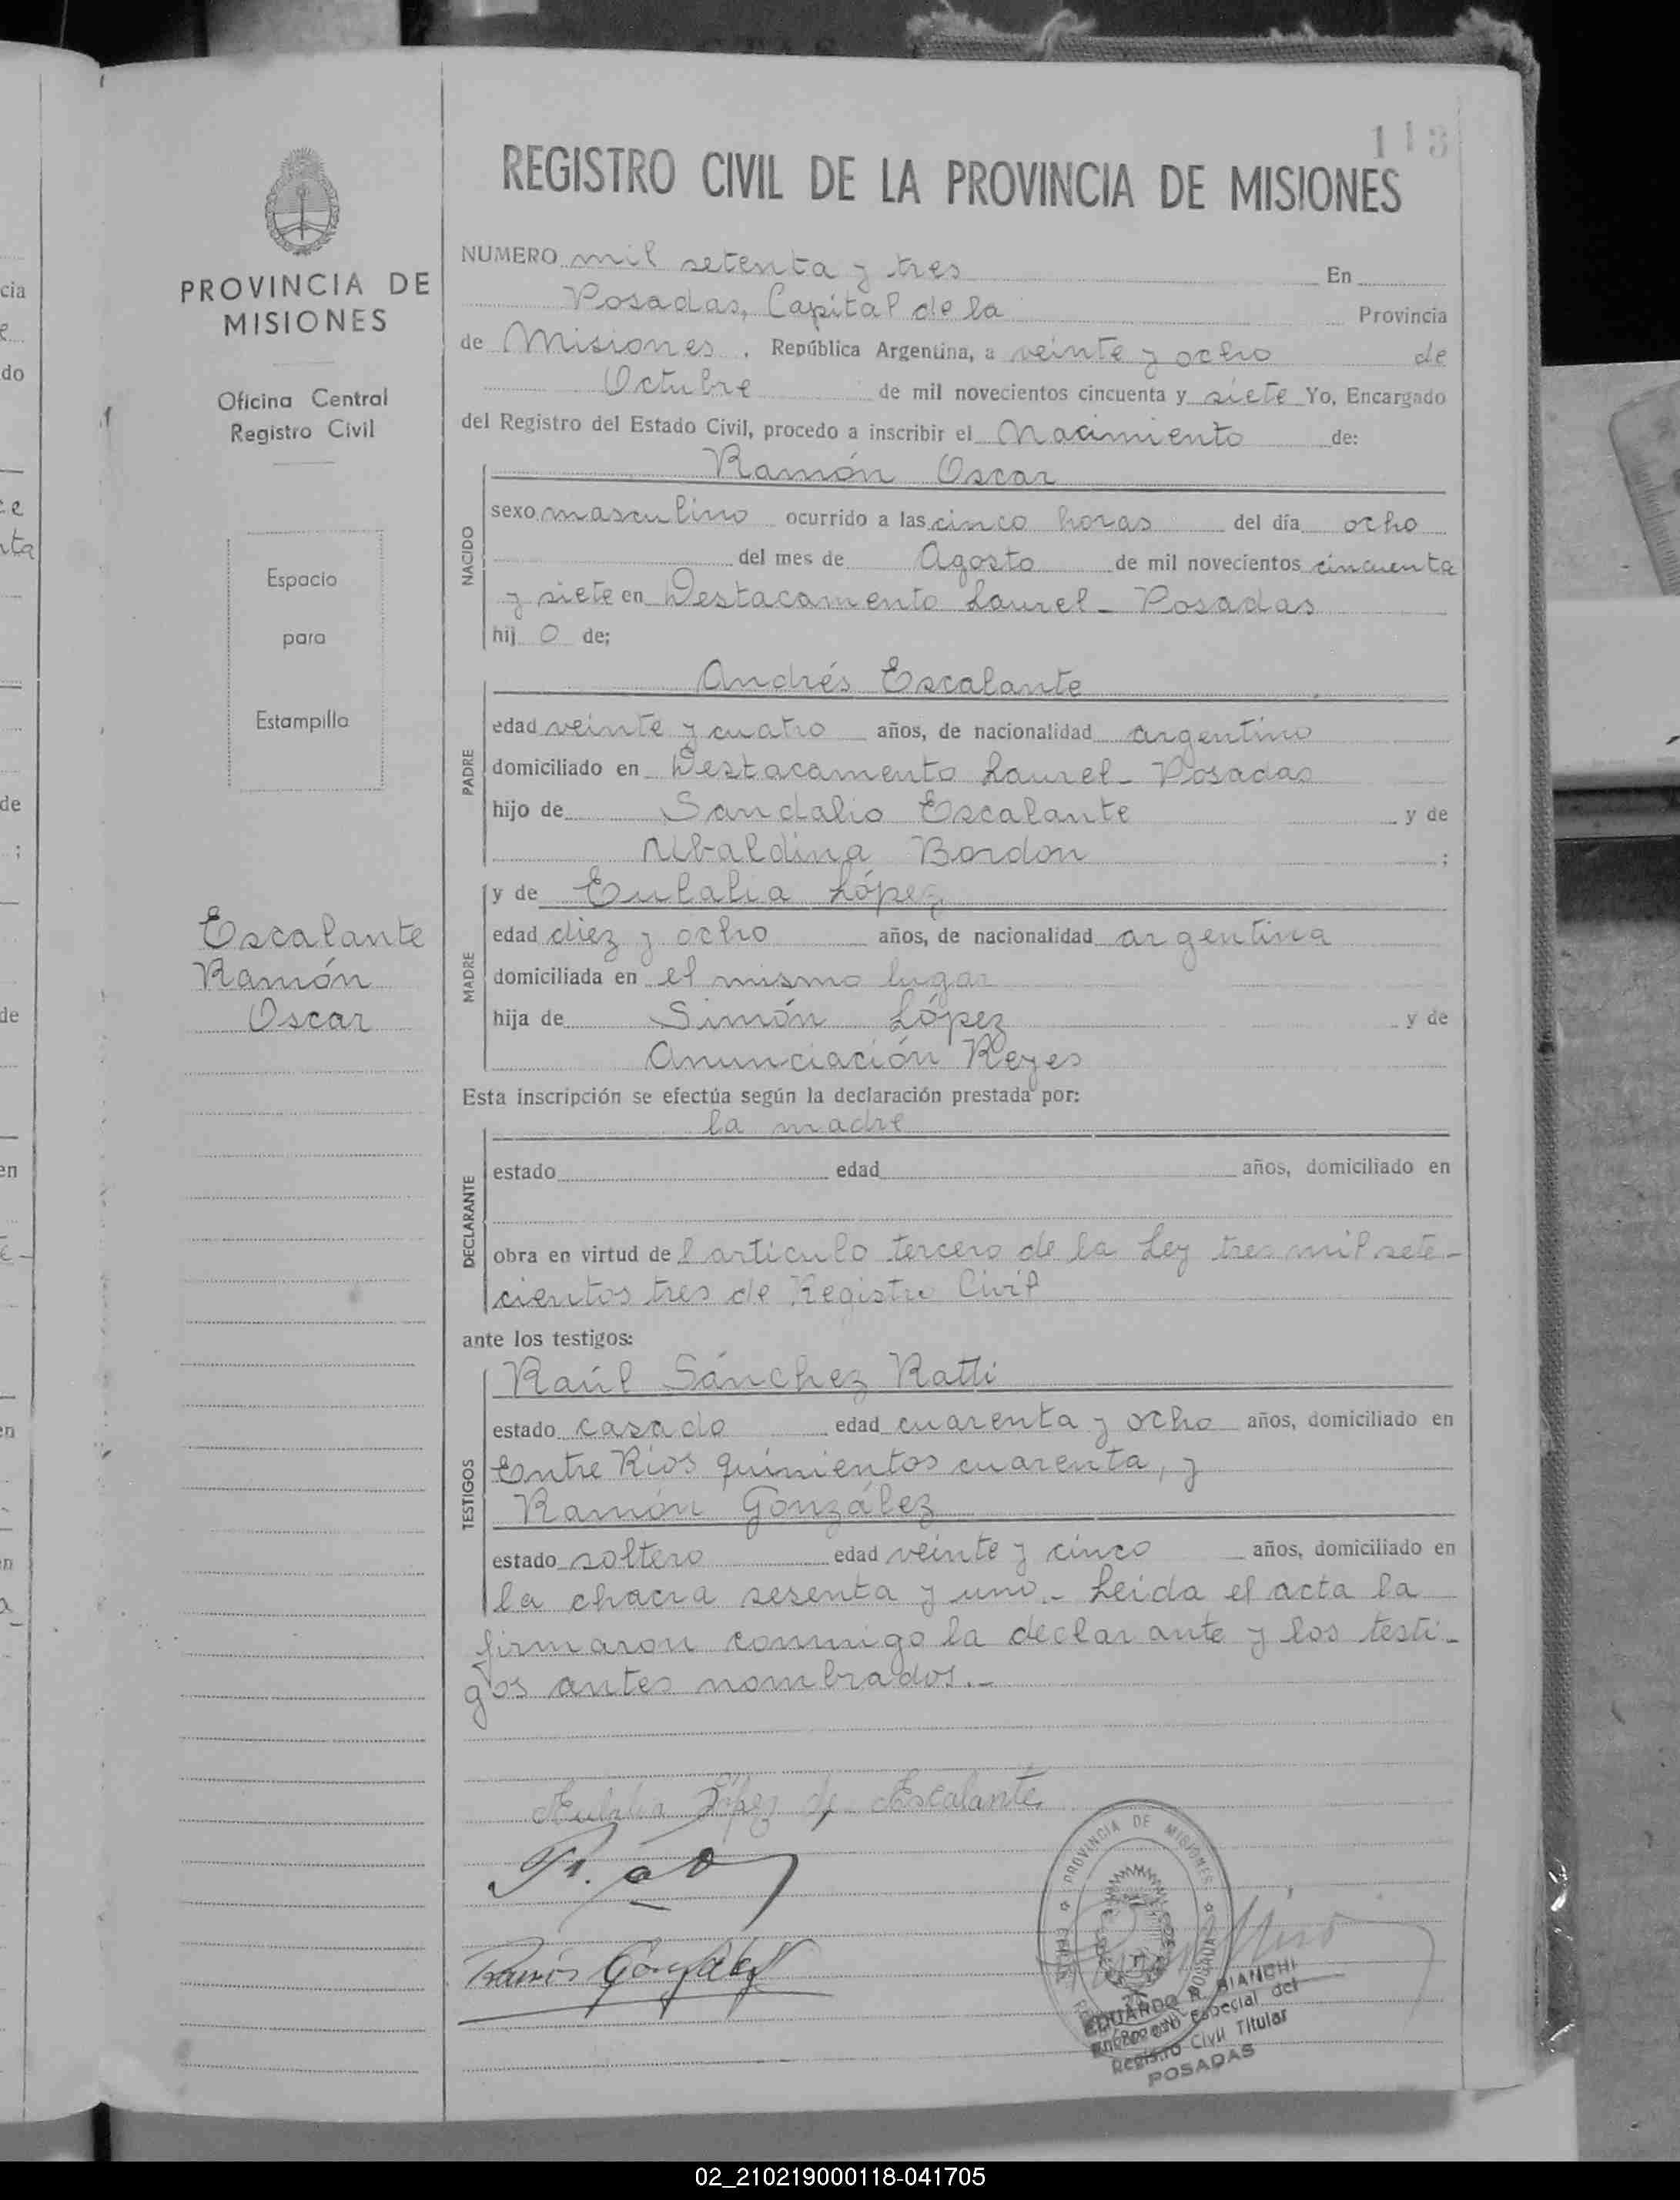 113
REGISTRO CIVIL DE LA PROVINCIA DE MISIONES
PROVINCIA DE
MISIONES
Oficina Central
Registro Civil
Espacio
para
Estampilla
Escalante
Ramón
Oscar
NUMERO mil setenta y tres En
Posadas, Capital de la Provincia
de Misiones, República Argentina, a veinte y ocho de
Octubre de mil novecientos cincuenta y siete Yo, Encargado
del Registro del Estado Civil, procedo a inscribir el Nacimiento de:
NACIDO
Ramón Oscar
sexo masculino ocurrido a las cinco horas del día ocho
del mes de Agosto de mil novecientos cincuenta
y siete en Destacamento Laurel - Posadas
hij o de;
PADRE
Andrés Escalante
edad veinte y cuatro años, de nacionalidad argentino
domiciliado en Destacamento Laurel - Posadas
hijo de Sandalio Escalante y de
Ubaldina Bordon ;
MADRE
y de Eulalia López
edad diez y ocho años, de nacionalidad argentina
domiciliada en el mismo lugar
hija de Simón López y de
Anunciación Reyes
Esta inscripción se efectúa según la declaración prestada por:
DECLARANTE
la madre
estado edad años, domiciliado en
obra en virtud de l artículo tercero de la Ley tres mil sete-
cientos tres de Registro Civil
ante los testigos:
TESTIGOS
Raúl Sánchez Ratti
estado casado edad cuarenta y ocho años, domiciliado en
Entre Ríos quinientos cuarenta, y
Ramón González
estado soltero edad veinte y cinco años, domiciliado en
la chacra sesenta y uno.- Leída el acta la
firmaron conmigo la declarante y los testi-
gos antes nombrados.-
Eulalia López de Escalante
Ramón González
PROVINCIA DE MISIONES
POSADAS
EDUARDO R. BIANCHI
Encargado Especial del
Registro Civil Titular
POSADAS
02_210219000118-041705